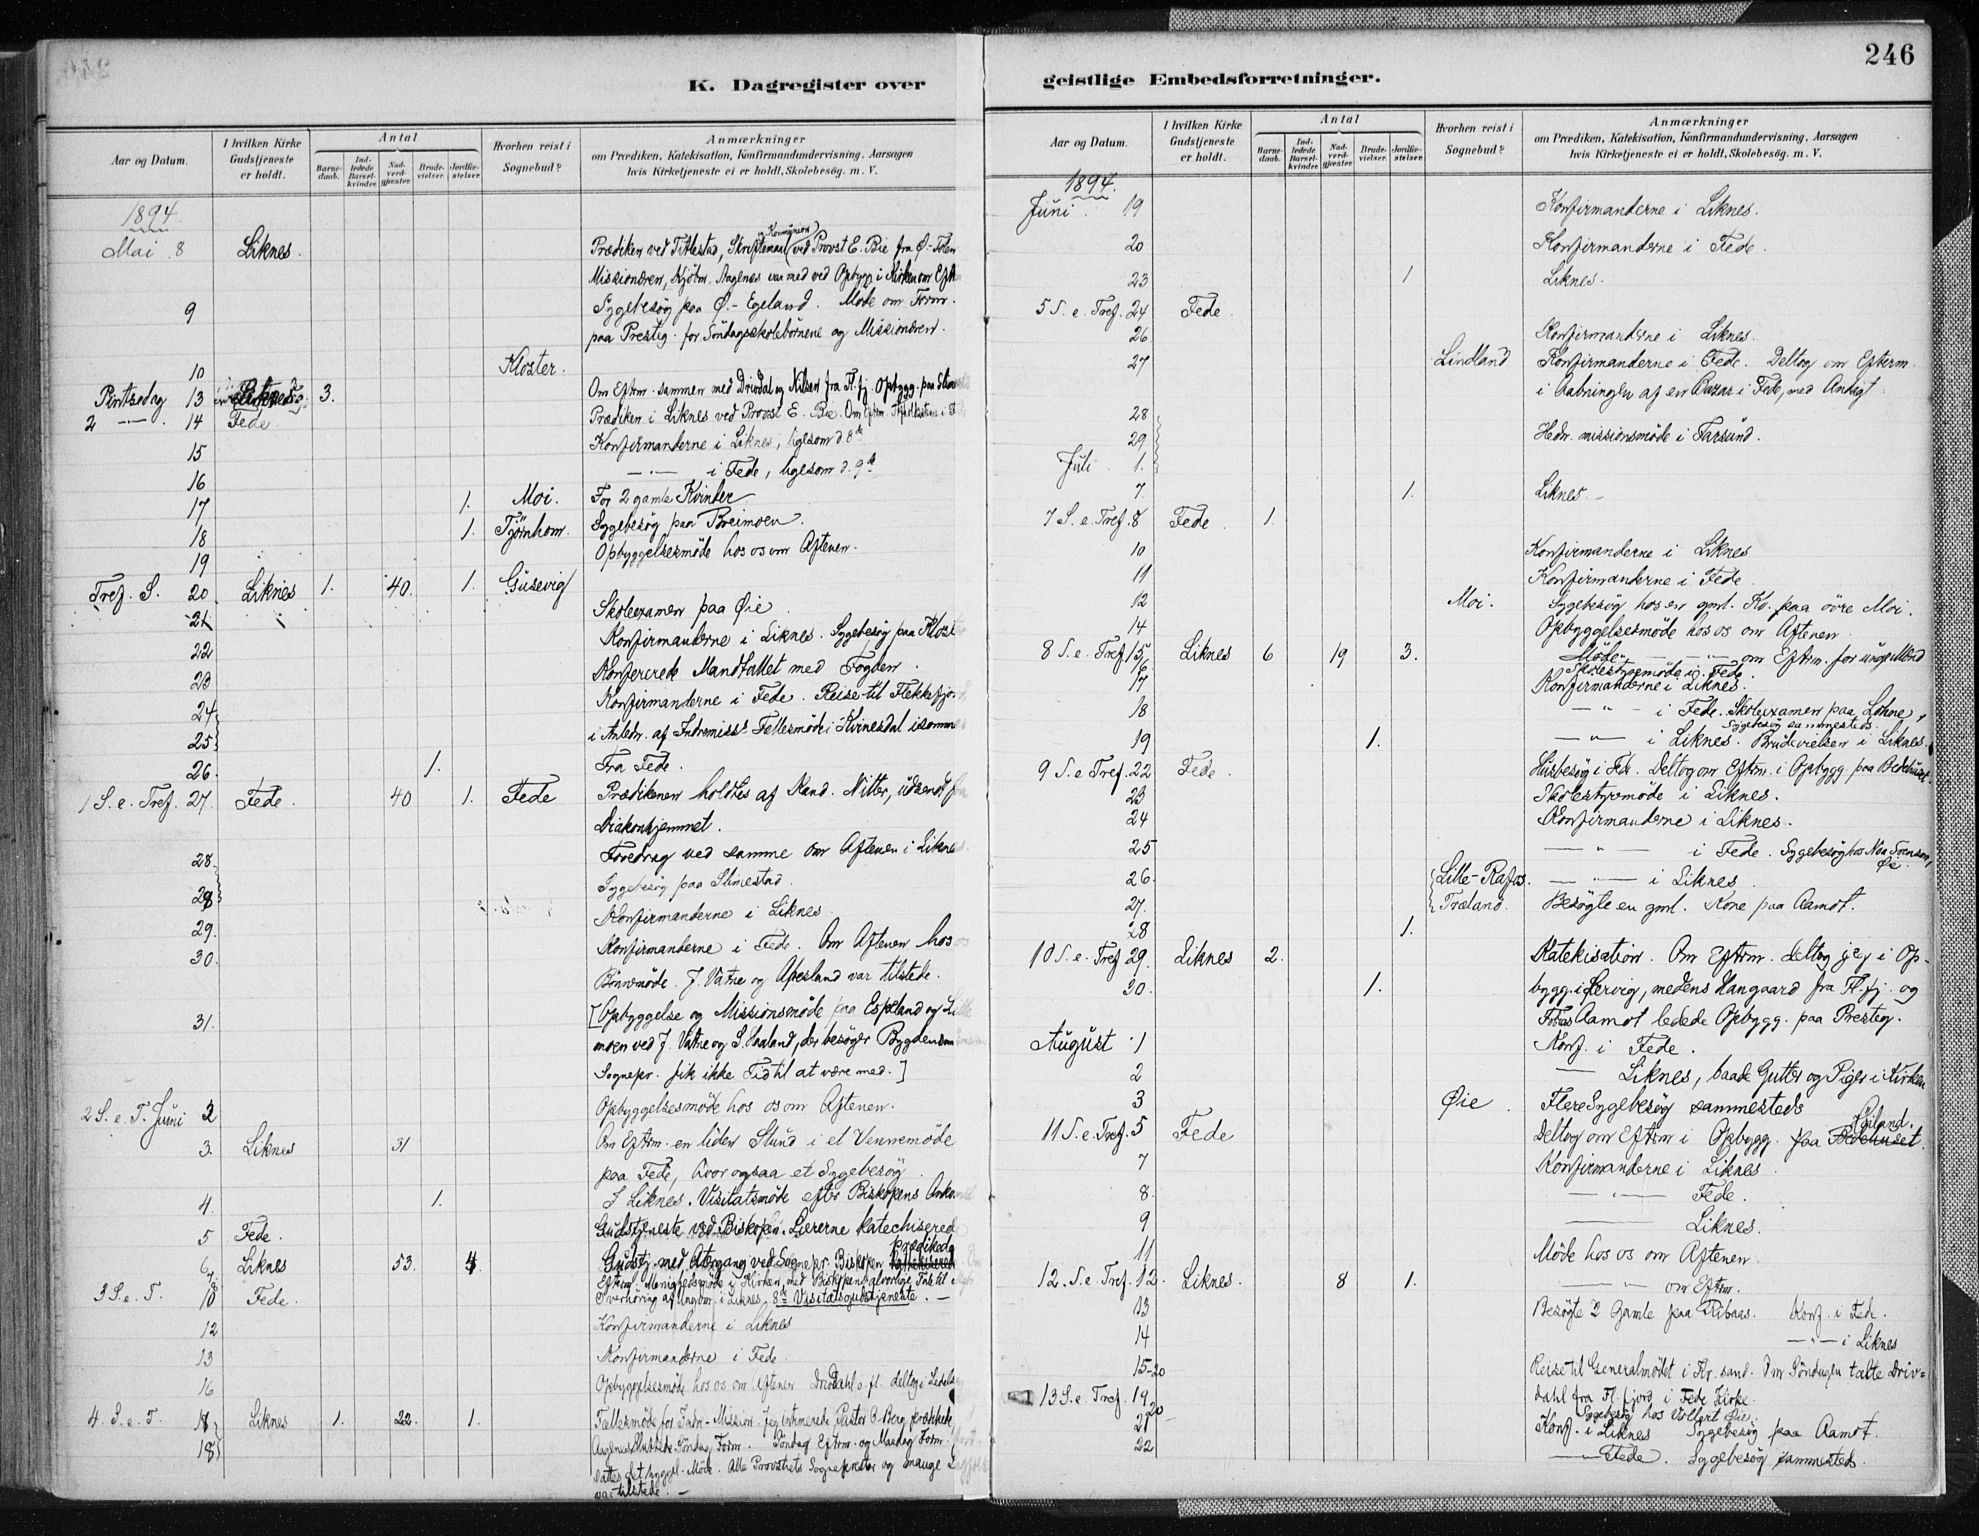 246
K. Dagregister over geistlige Embedsforretninger.
Aar og Datum.
I hvilken Kirke Gudstjeneste er holdt.
Antal
Barnedaab.
Indledede Barselkvinder.
Nadverdgjæster.
Brudevielser.
Jordfæstelser.
Hvorhen reist i Sognebud?
Anmærkninger
om Prædiken, Katekisation, Konfirmandundervisning, Aarsagen
hvis Kirketjeneste ei er holdt, Skolebesøg. m. V.
1894.
Mai 8 Liknes. Prædiken ved Titlestad, Skriftemaal og Kommunion ved Provst E. Bie fra Ø.-Toten
Missionæren, Aagenes var med ved Opbygg. i Kirken om Eft
9 Sygebesøg paa Ø.-Egeland. Møde om Form.
paa Presteg. for Söndagsskolebörnene og Missionæren.
10 Kloster.
Pintsedag 13 3. Om Eftrm. sammen med Drivdal og Nilsen fra Fl.fj. Opbygg. paa
2 —"— 14 Fede Prædiken i Liknes ved Provst E. Bie. Om Eftm.
15 Konfirmanderne i Liknes, ligesom d. 8de
16 —"— i Fede, ligesom d. 9de
17 1. Moi. For 2 gamle Kvinder
18 1. Tjørnhom. Sygebesøg paa Breimoen.
19 Opbyggelsesmöde hos os om Aftenen.
Tref. S. 20 Liknes 1. 40. 1. Gusevig
21 Skoleexamen paa Øie
22 Konfirmanderne i Liknes. Sygebesøg paa Kloster
23 Konfererede Mandtallet med Fogden.
24 Konfirmanderne i Fede. Reise til Flekkefjord
25 i Anledn. af Indremiss. Fellesmöde i Kvinesdal isommer
26. 1. Fra Fede.
1 S. e. Tref. 27. Fede. 40 1. Fede Prædikenen holdtes af Kand. Nitter, udsendt fra
Diakonhjemmet.
Foredrag ved samme om Aftenen i Liknes.
28. Sygebesøg paa Slimestad.
28 Konfirmanderne i Liknes
29. Konfirmanderne i Fede. Om Aftenen hos os
30. Bönnemöde. J. Vatne og Apesland var tilstede.
31. [Opbyggelse og Missionsmöde paa Espeland og Lille
moen ved J. Vatne og S. Haaland, der besøger Bygden som
Sognepr. fik ikke Tid til at være med.]
2 S. e. T. Juni 2 Opbyggelsesmöde hos os om Aftenen.
3. Liknes 31 Om Eftrm. en liden Stund i et Vennemöde
paa Fede, hvor ogsaa et Sygebesög
4. 1. I Liknes. Visitatsmöde efter Biskopens Ankomst
5 Fede. Gudstjeneste ved Biskopen. Lærerne katechiserede
6 Liknes 53. 4 Gudstj. med Altergang ved Sognepr. Biskopen prædikede
7 Efterm. Menighedsmöde i Kirken, med Biskopens alvorlige Tale til
8 Overhöring af Ungdom. i Liknes, 8de Visitatsgudstjeneste. —
3 S. e. T. 10 Fede.
12 Konfirmanderne i Liknes
13 Konfirmanderne i Fede.
16 Opbyggelsesmöde hos os om Aftenen Drivdahl o. fl. deltog i Ledelsen
4. S. e. T. 17 Liknes 1. 22. 1. Fællesmöde for Indre-Mission. Jeg intimerede, Pastor O. Berg prædikede,
18 Aagenes sluttede Söndag Form. Söndag Eftrm. og Mandag Form.
var tilstede. —
1894.
Juni 19 Konfirmanderne i Liknes.
20 Konfirmanderne i Fede.
23 1 Liknes.
5 S. e. Tref. 24 Fede.
26. Konfirmanderne i Liknes.
27 Lindland Konfirmanderne i Fede. Deltog om Efterm.
i Aabningen af en Bazar i Fede, med Andagt
28
29 Hedn. missionsmöde i Farsund.
Juli 1.
7 1. Liknes. —
7 S. e. Tref. 8 Fede 1.
10 Konfirmanderne i Liknes
11 Konfirmanderne i Fede.
12 Moi. Sygebesög hos en gml. Ko. paa övre Moi.
14 Opbyggelsesmöde hos os om Aftenen.
8 S. e. Tref. 15 Liknes 6 19 3. Möde —"— om Eftrm. for unge Mænd
16 Skolestyremöde i Fede.
17 Konfirmanderne i Liknes.
18 —"— i Fede. Skoleexamen paa Lohne, Sygebesög sammesteds.
19 1. —"— i Liknes. Brudevielsen i Liknes.
9 S. e. Tref. 22 Fede. Husbesög i Fede. Deltog om Eftrm. i Opbygg. paa Bedehuset
23 Skolestyremöde i Liknes.
24 Konfirmanderne i Liknes.
25 —"— i Fede. Sygebesög hos Noa Svensen, Øie
26. Lille-Rafos. —"— i Liknes
27. Træland. Besögte en gml. Kone paa Aamot.
28 1.
10 S. e. Tref. 29. Liknes 2. Katekisation. Om Eftrm. deltog jeg i Op-
30. 1. bygg. i Lervig, medens Haugaard fra Fl.fj. og
Tobias Aamot ledede Opbygg. paa Presteg.
August 1 Konf. i Fede.
2 — Liknes, baade Gutter og Piger i Kirken
3 Øie Flere Sygebesög sammesteds
11 S. e. Tref. 5 Fede Deltog om Eftrm i Opbygg. paa Bedehuset
7 Konfirmanderne i Liknes.
8. —"— Fede.
9 — Liknes.
11 Möde hos os om Aftenen.
12. S. e. Tref. 12. Liknes. 8 1. —"— om Eftrm.
13 Besögte 2 Gamle paa Ribaas. Konf. i Fede.
14 —"— i Liknes
15-20 Reise til Generalmödet i Kr.sand. Om Söndagen talte Driv-
13 S. e. Tref. 19 dahl fra Fl.fjord i Fede Kirke.
20 Sygebesög hos Vollert Øie.
21 Konf. i Liknes Sygebesög paa Aamot.
22 — Fede. Sygebesög sammesteds.